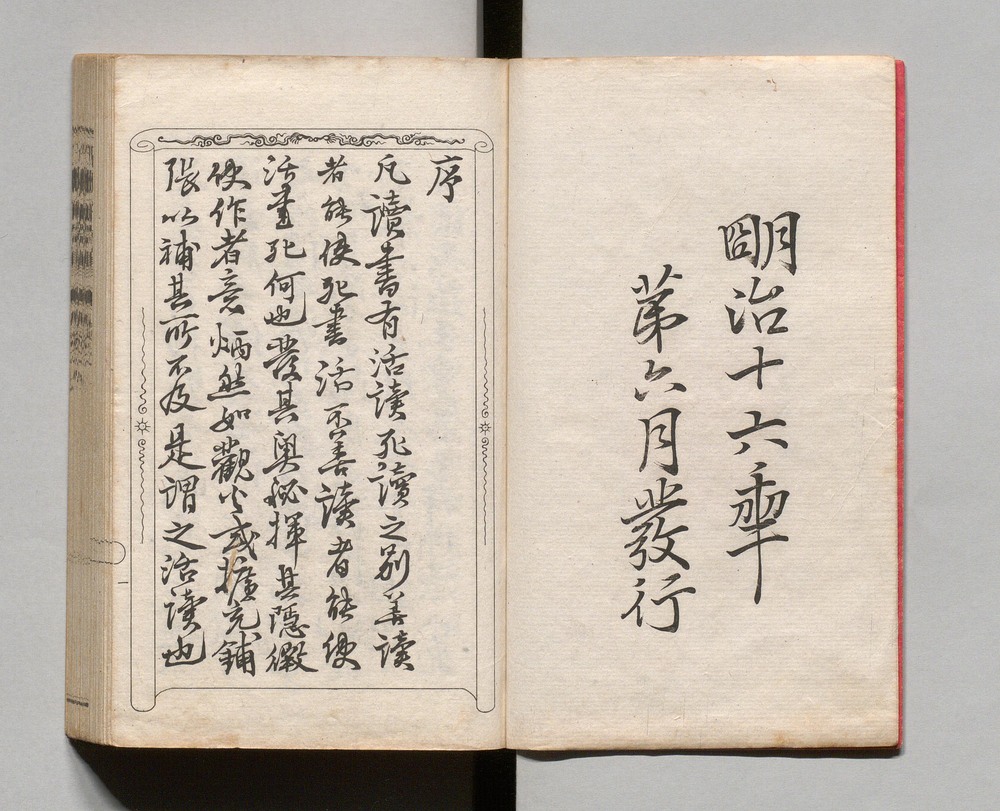 明治十六年
第六月發行
序
凡讀書有活讀死讀之別善讀
者能使死書活不善讀者能使
活書死何也發其奧秘揮其隱微
使作者意炳然如觀火或擴充鋪
張以補其所不及是謂之活讀也